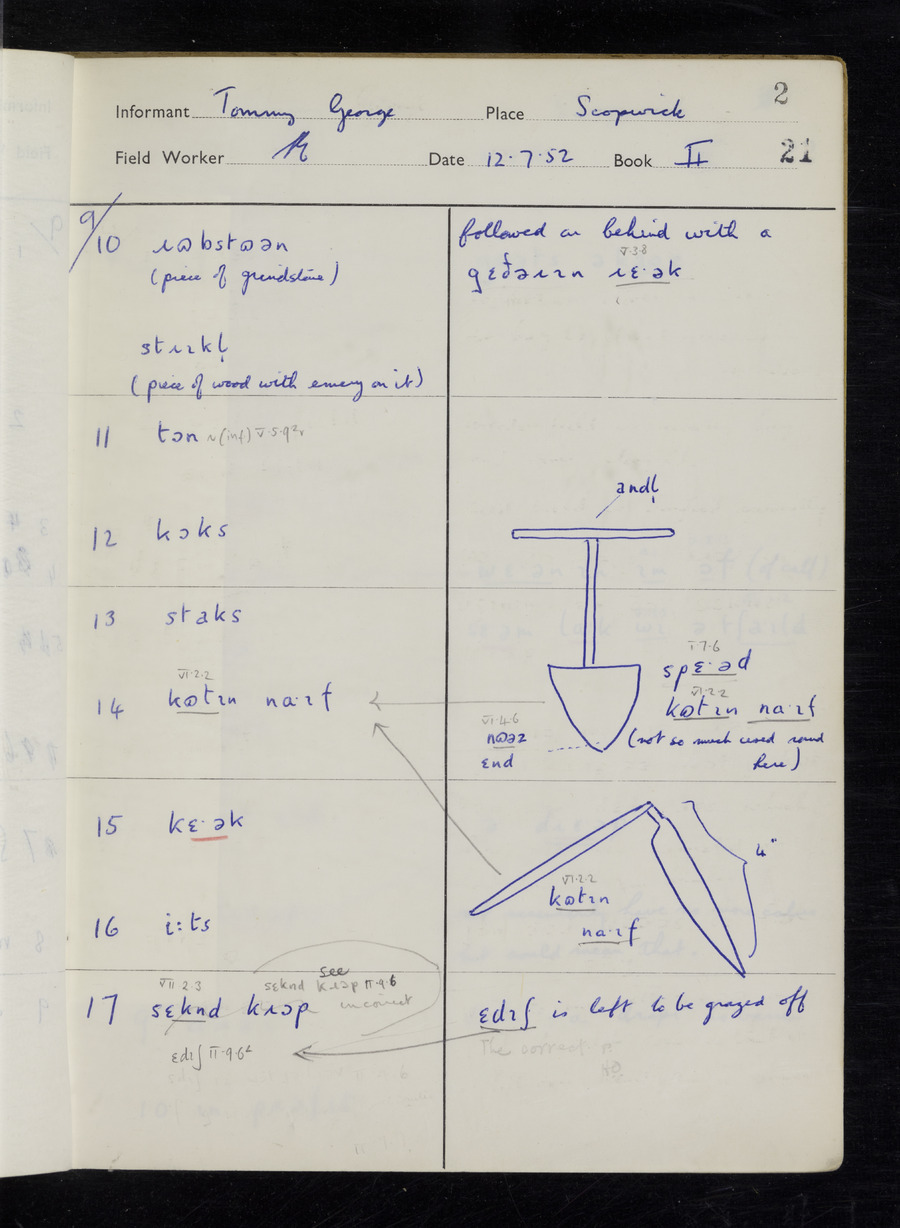 2
Informant Tommy George Place Scopwick
Field Worker Date 12·7·52 Book II 21
9/
10 ɹɷbstɷən
(piece of grindstone)
stɹɪkl̩
(piece of wood with emery on it)
11 tɔn (inf) V·5·9²
12 kɔks
13 staks
VI·2·2
14 kɷtɪn na·ɪf
15 kɛ·ək
16 i:ts
VII 2·3
17 sɛknd kɹɔp
see
sɛknd kɹɔp II·9·6
incorrect
ɛdɪʃ II·9·6²
followed on behind with a
V·3·8
gɛðəɹɪn ɹɛ·ək
andl̩
I·7·6
spɛ·əd
VI·2·2
kɷtɪn na·ɪf
(not so much used round
here)
VI·4·6
nɷəz
ɛnd
4"
VI·2·2
kɷtɪn
na·ɪf
ɛdɪʃ is left to be grazed off
The correct r.